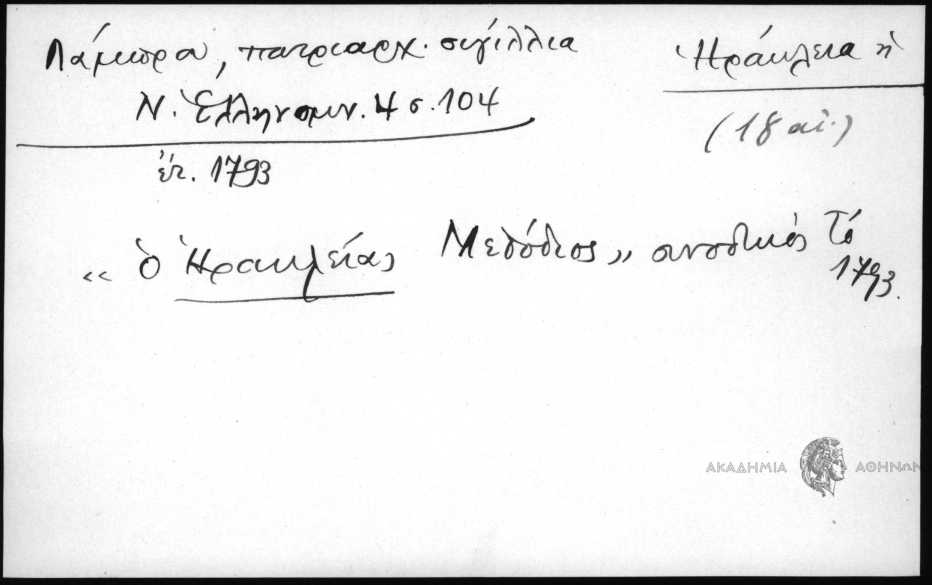 Λάμπρου, πατριαρχ. σιγίλλια
Ν. Ἑλληνομν. 4 σ. 104
Ἡράκλεια ἡ
(18 αἰ.)
ἔτ. 1793
« ὁ Ἡρακλείας Μεθόδιος » συνοδικός τό
1793.
ΑΚΑΔΗΜΙΑ ΑΘΗΝΩΝ